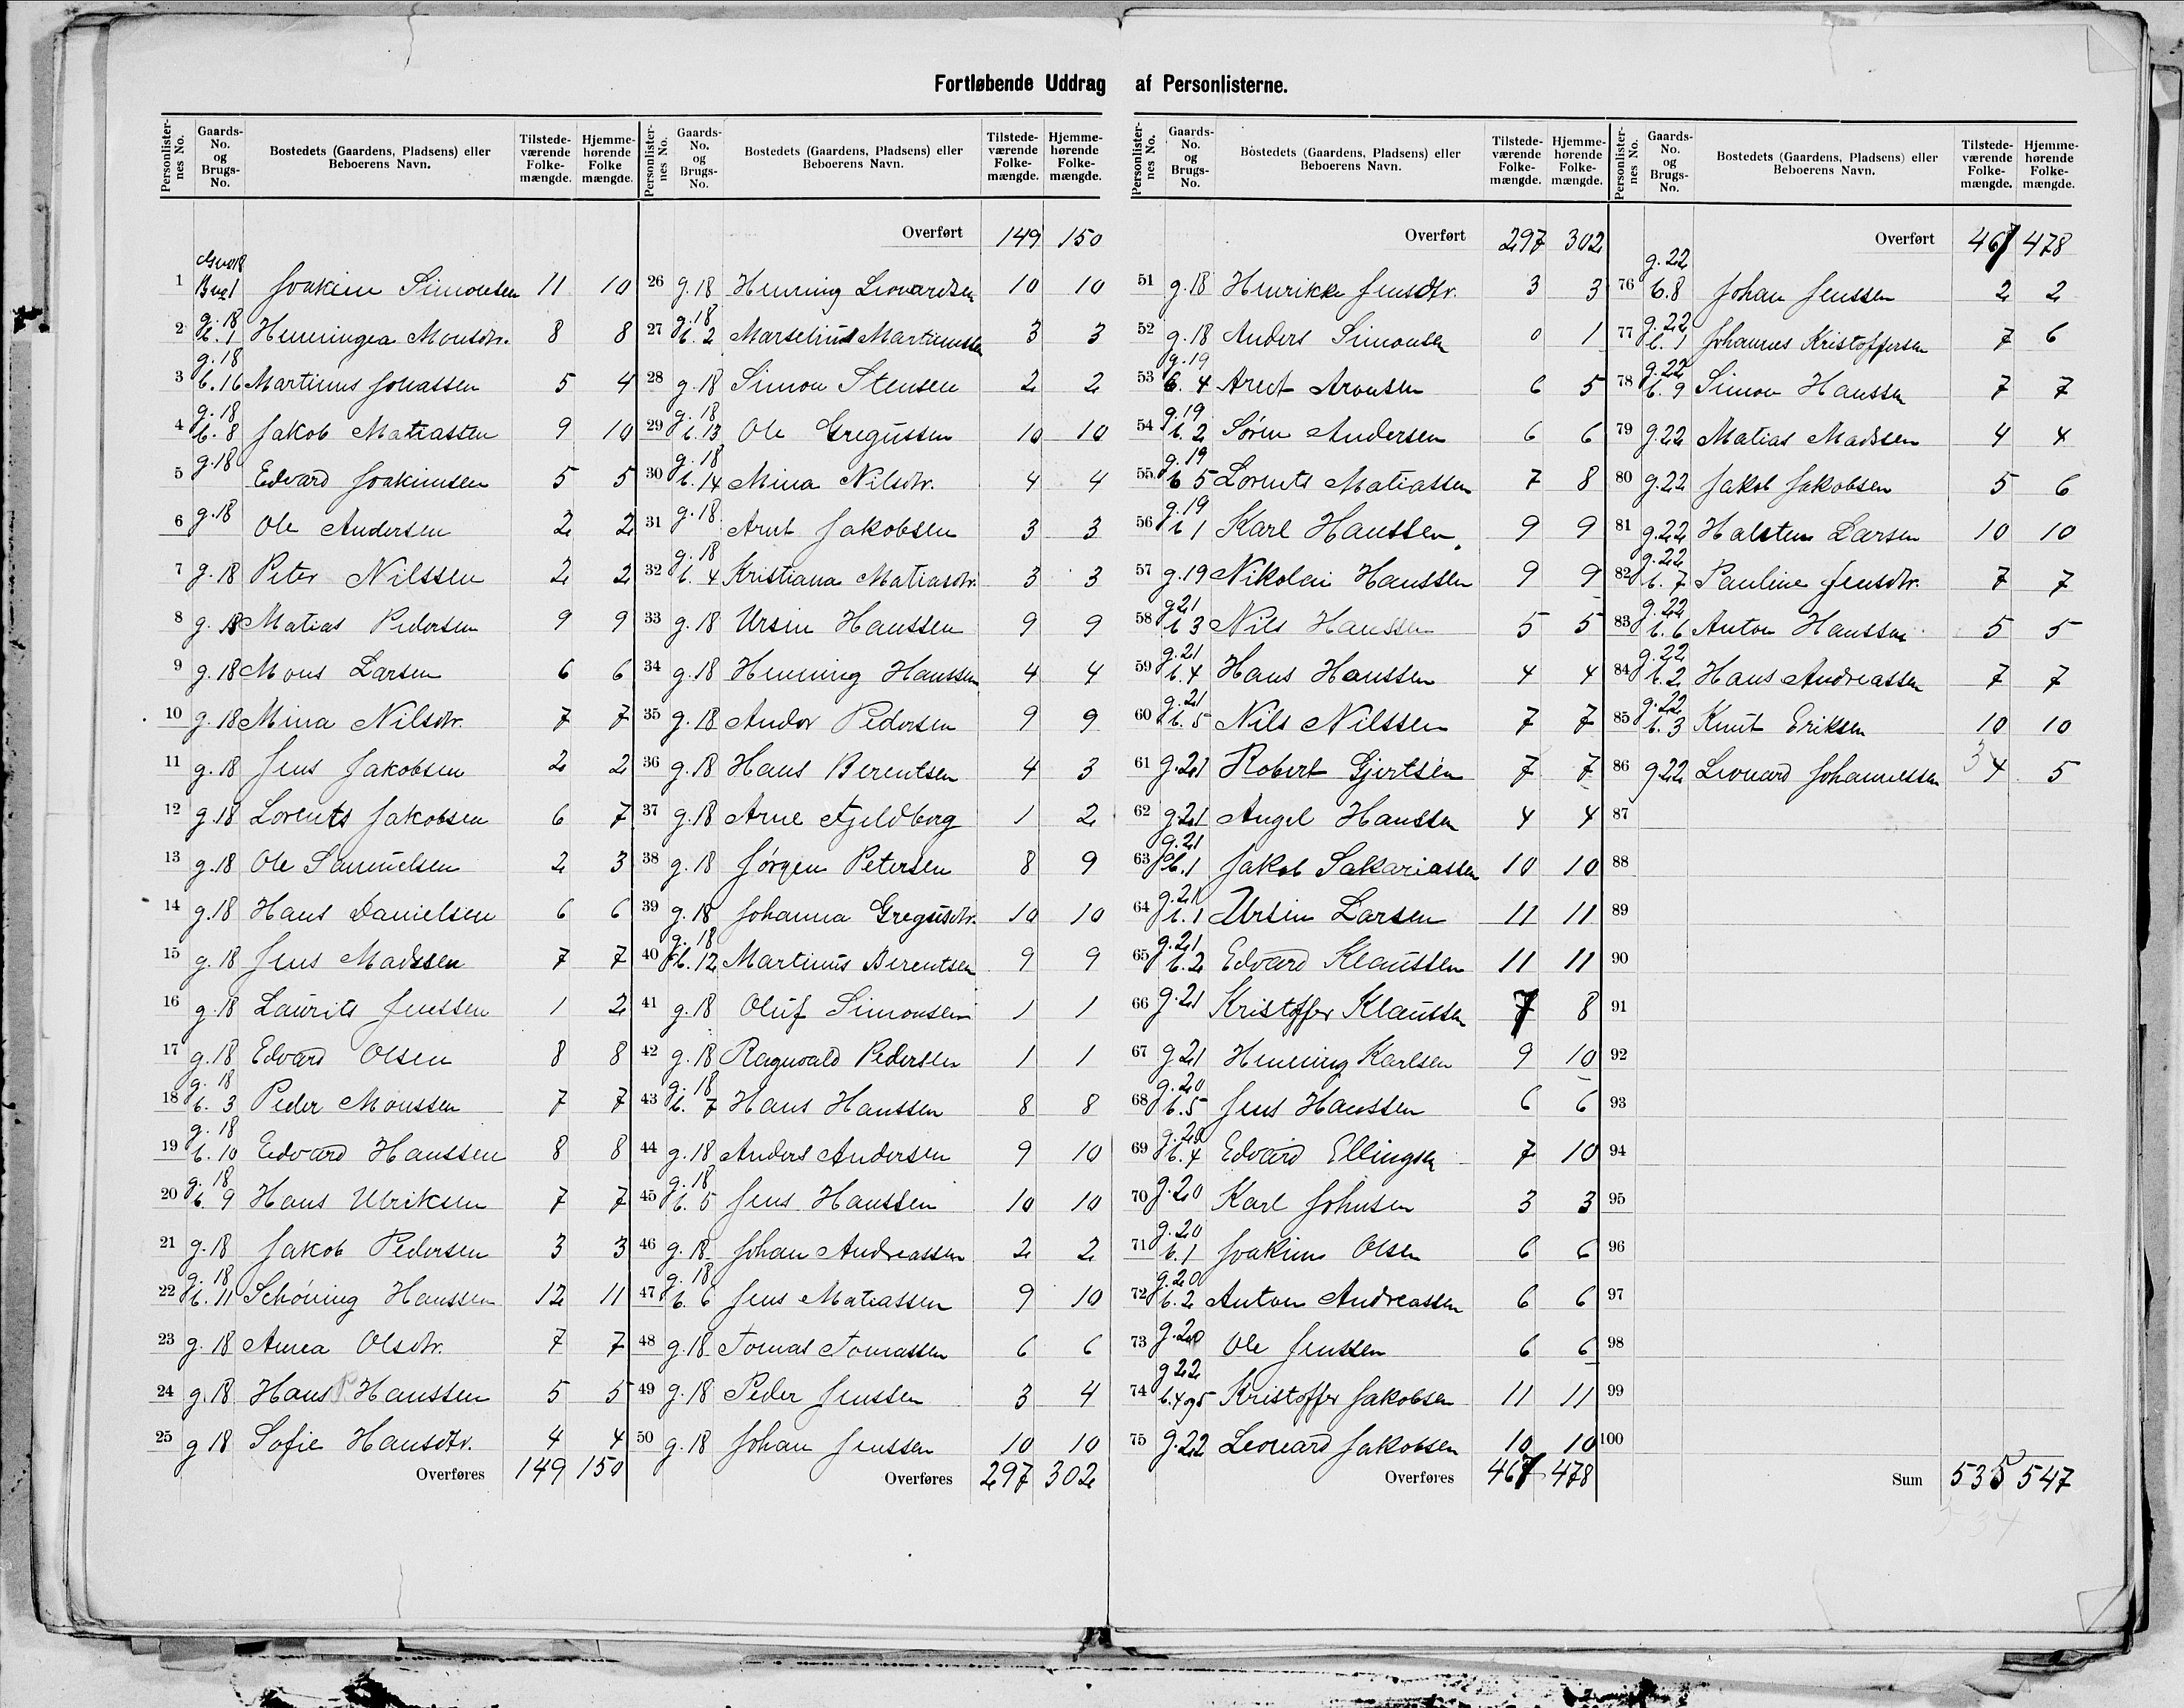 Fortløbende Uddrag af Personlisterne.
Personlisternes No. Gaards-No. og Brugs-No. Bostedets (Gaardens, Pladsens) eller Beboerens Navn. Tilstedeværende Folkemængde. Hjemmehørende Folkemængde.
1 Gno 18 Bno 1 Joakim Simonsen 11 10
2 g. 18 b. 1 Henningea Monsdtr. 8 8
3 g. 18 b. 16 Martinus Jonassen 5 4
4 g. 18 b. 8 Jakob Matiassen 9 10
5 g. 18 Edvard Joakimsen 5 5
6 g. 18 Ole Andersen 2 2
7 g. 18 Peter Nilssen 2 2
8 g. 18 Matias Pedersen 9 9
9 g. 18 Mons Larsen 6 6
10 g. 18 Mina Nilsdtr. 7 7
11 g. 18 Jens Jakobsen 2 2
12 g. 18 Lorents Jakobsen 6 7
13 g. 18 Ole Samuelsen 2 3
14 g. 18 Hans Danielsen 6 6
15 g. 18 Jens Madssen 7 7
16 g. 18 Laurits Jenssen 1 2
17 g. 18 Edvard Olsen 8 8
18 g. 18 b. 3 Peder Monssen 7 7
19 g. 18 b. 10 Edvard Hanssen 8 8
20 g. 18 b. 9 Hans Ulriksen 7 7
21 g. 18 Jakob Pedersen 3 3
22 g. 18 b. 11 Schöning Hanssen 12 11
23 g. 18 Anna Olsdtr. 7 7
24 g. 18 Hans P Hanssen 5 5
25 g 18 Sofie Hansdtr. 4 4
Overføres 149 150
Personlisternes No. Gaards-No. og Brugs-No. Bostedets (Gaardens, Pladsens) eller Beboerens Navn. Tilstedeværende Folkemængde. Hjemmehørende Folkemængde.
Overført 149 150
26 g. 18 Henning Leonardsen 10 10
27 g. 18 b. 2 Marselius Martinussen 3 3
28 g. 18 Simon Stensen 2 2
29 g. 18 b. 13 Ole Gregussen 10 10
30 g. 18 b. 14 Mina Nilsdtr. 4 4
31 g. 18 Arnt Jakobsen 3 3
32 g. 18 b. 4 Kristiana Matiasdtr. 3 3
33 g. 18 Ursin Hanssen 9 9
34 g. 18 Henning Hanssen 4 4
35 g. 18 Andor Pedersen 9 9
36 g. 18 Hans Berentsen 4 3
37 g. 18 Arne Fjeldberg 1 2
38 g. 18 Jørgen Petersen 8 9
39 g. 18 Johanna Gregusdtr. 10 10
40 g. 18 b. 12 Martinus Berentsen 9 9
41 g. 18 Oluf Simonsen 1 1
42 g. 18 Ragnvald Pedersen 1 1
43 g. 18 b. 7 Hans Hanssen 8 8
44 g. 18 Anders Andersen 9 10
45 g. 18 b. 5 Jens Hanssen 10 10
46 g. 18 Johan Andreassen 2 2
47 g. 18 b. 6 Jens Matiassen 9 10
48 g. 18 Tomas Tomassen 6 6
49 g. 18 Peder Jenssen 3 4
50 g. 18 Johan Jenssen 10 10
Overføres 297 302
Personlisternes No. Gaards-No. og Brugs-No. Bostedets (Gaardens, Pladsens) eller Beboerens Navn. Tilstedeværende Folkemængde. Hjemmehørende Folkemængde.
Overført 297 302
51 g. 18 Henrikke Jensdtr. 3 3
52 g. 18 Anders Simonsen 0 1
53 g. 19 b. 4 Arnt Aronsen 6 5
54 g. 19 b. 2 Sören Andersen 6 6
55 g. 19 b 5 Lorents Matiassen 7 8
56 g. 19 b 1 Karl Hanssen. 9 9
57 g. 19 Nikolai Hanssen 9 9
58 g 21 b 3 Nils Hanssen 5 5
59 g. 21 b. 4 Hans Hanssen 4 4
60 g. 21 b. 5 Nils Nilssen 7 7
61 g. 21 Robert Gjertsen 7 7
62 g. 21 Angel Hanssen 4 4
63 g. 21 b. 1 Jakob Sakariassen 10 10
64 g. 21 b. 1 Ursin Larsen 11 11
65 g. 21 b. 2 Edvard Klaussen 11 11
66 g. 21 Kristoffer Klaussen 7 8
67 g 21 Henning Karlsen 9 10
68 g. 20 b. 5 Jens Hanssen 6 6
69 g. 20 b. 4 Edvard Ellingsen 7 10
70 g. 20 Karl Johnsen 3 3
71 g. 20 b. 1 Joakim Olsen 6 6
72 g. 20 b. 2 Anton Andreassen 6 6
73 g. 20 Ole Jenssen 6 6
74 g 22 b. 4 og 5 Kristoffer Jakobsen 11 11
75 g. 22 Leonard Jakobsen 10 10
Overføres 467 478
Personlisternes No. Gaards-No. og Brugs-No. Bostedets (Gaardens, Pladsens) eller Beboerens Navn. Tilstedeværende Folkemængde. Hjemmehørende Folkemængde.
Overført 467 478
76 g. 22 b. 8 Johan Jenssen 2 2
77 g. 22 b. 1 Johannes Kristoffersen 7 6
78 g. 22 b. 9 Simon Hanssen 7 7
79 g. 22 Matias Madssen 4 4
80 g. 22 Jakob Jakobsen 5 6
81 g. 22 Halsten Larsen 10 10
82 g. 22 b. 7 Pauline Jensdtr. 7 7
83 g. 22 b. 6 Anton Hanssen 5 5
84 g. 22 b. 2 Hans Andreassen 7 7
85 g. 22 b. 3 Knut Eriksen 10 10
86 g 22 Leonard Johannessen 3 4 5
87
88
89
90
91
92
93
94
95
96
97
98
99
100
Sum 535 547
534